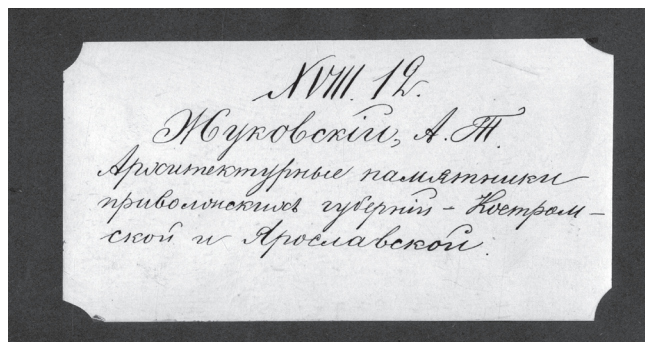 XVIII. 12.
Жуковскій, А. Т.
Архитектурные памятники
приволжскихъ губерній – Костром–
ской и Ярославской.